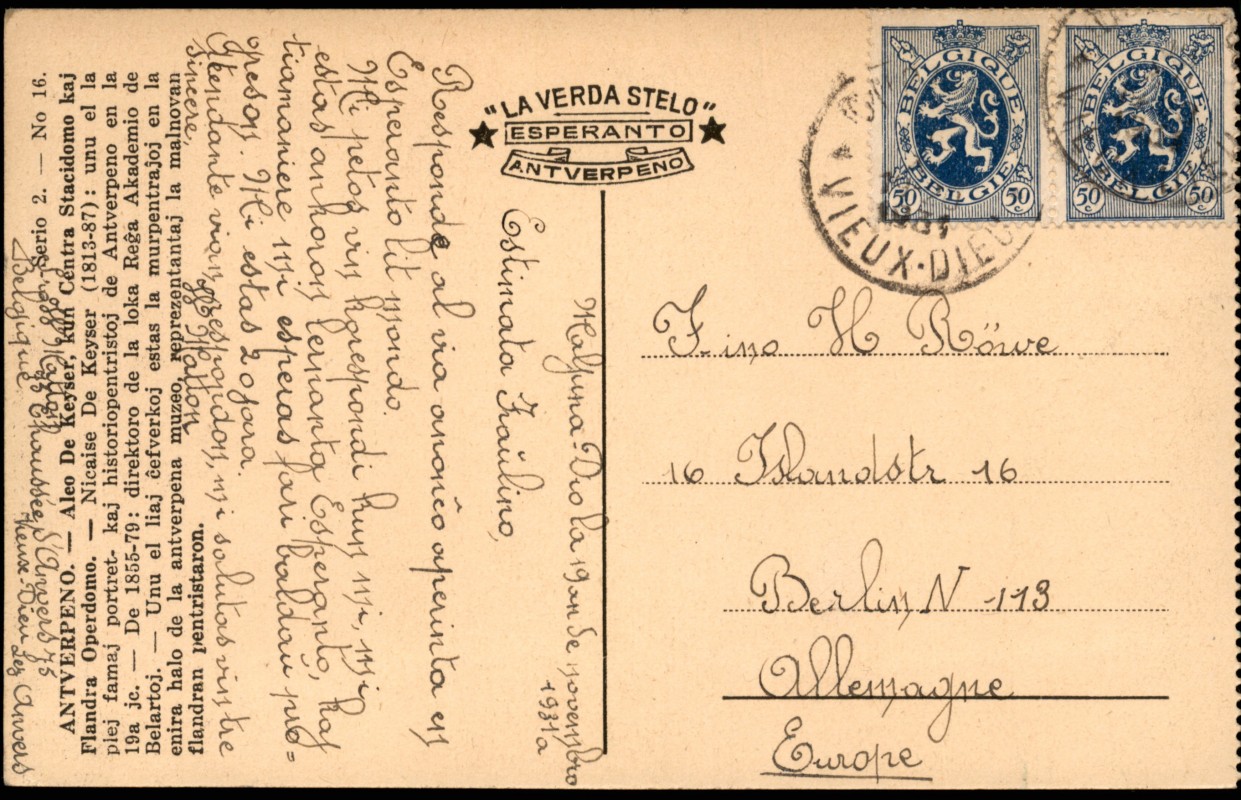 "LA VERDA STELO"
ESPERANTO
ANTVERPENO
BELGIQUE
BELGIË
50 50
BELGIQUE
BELGIË
50 50
VIEUX-DIEU
Maljuna-Dio la 19an de novembro
1931a
Estimata Fraŭlino,
Responde al via anonco aperinta en
Esperanto lit mondo.
Mi petas vin korespondi kun mi, mi
estas ankoraŭ lernanto Esperanto, kaj
tiamaniere mi esperas fari baldaŭ pro=
greson. Mi estas 20jara.
Atendante vian respondon, mi salutas vin tre
sincere,
gg Mallon
Chaussée d'Anvers 75
Vieux-Dieu Lez Anvers
Belgique.
Serio 2. — No 16.
ANTVERPENO. — Aleo De Keyser, kun Centra Stacidomo kaj
Flandra Operdomo. — Nicaise De Keyser (1813-87) : unu el la
plej famaj portret- kaj historiopentristoj de Antverpeno en la
19a jc. — De 1855-79 : direktoro de la loka Reĝa Akademio de
Belartoj. — Unu el liaj ĉefverkoj estas la murpentraĵoj en la
enira halo de la antverpena muzeo, reprezentantaj la malnovan
flandran pentristaron.
F. ino H Röwe
16 Islandstr 16
Berlin N -113
Allemagne
Europe